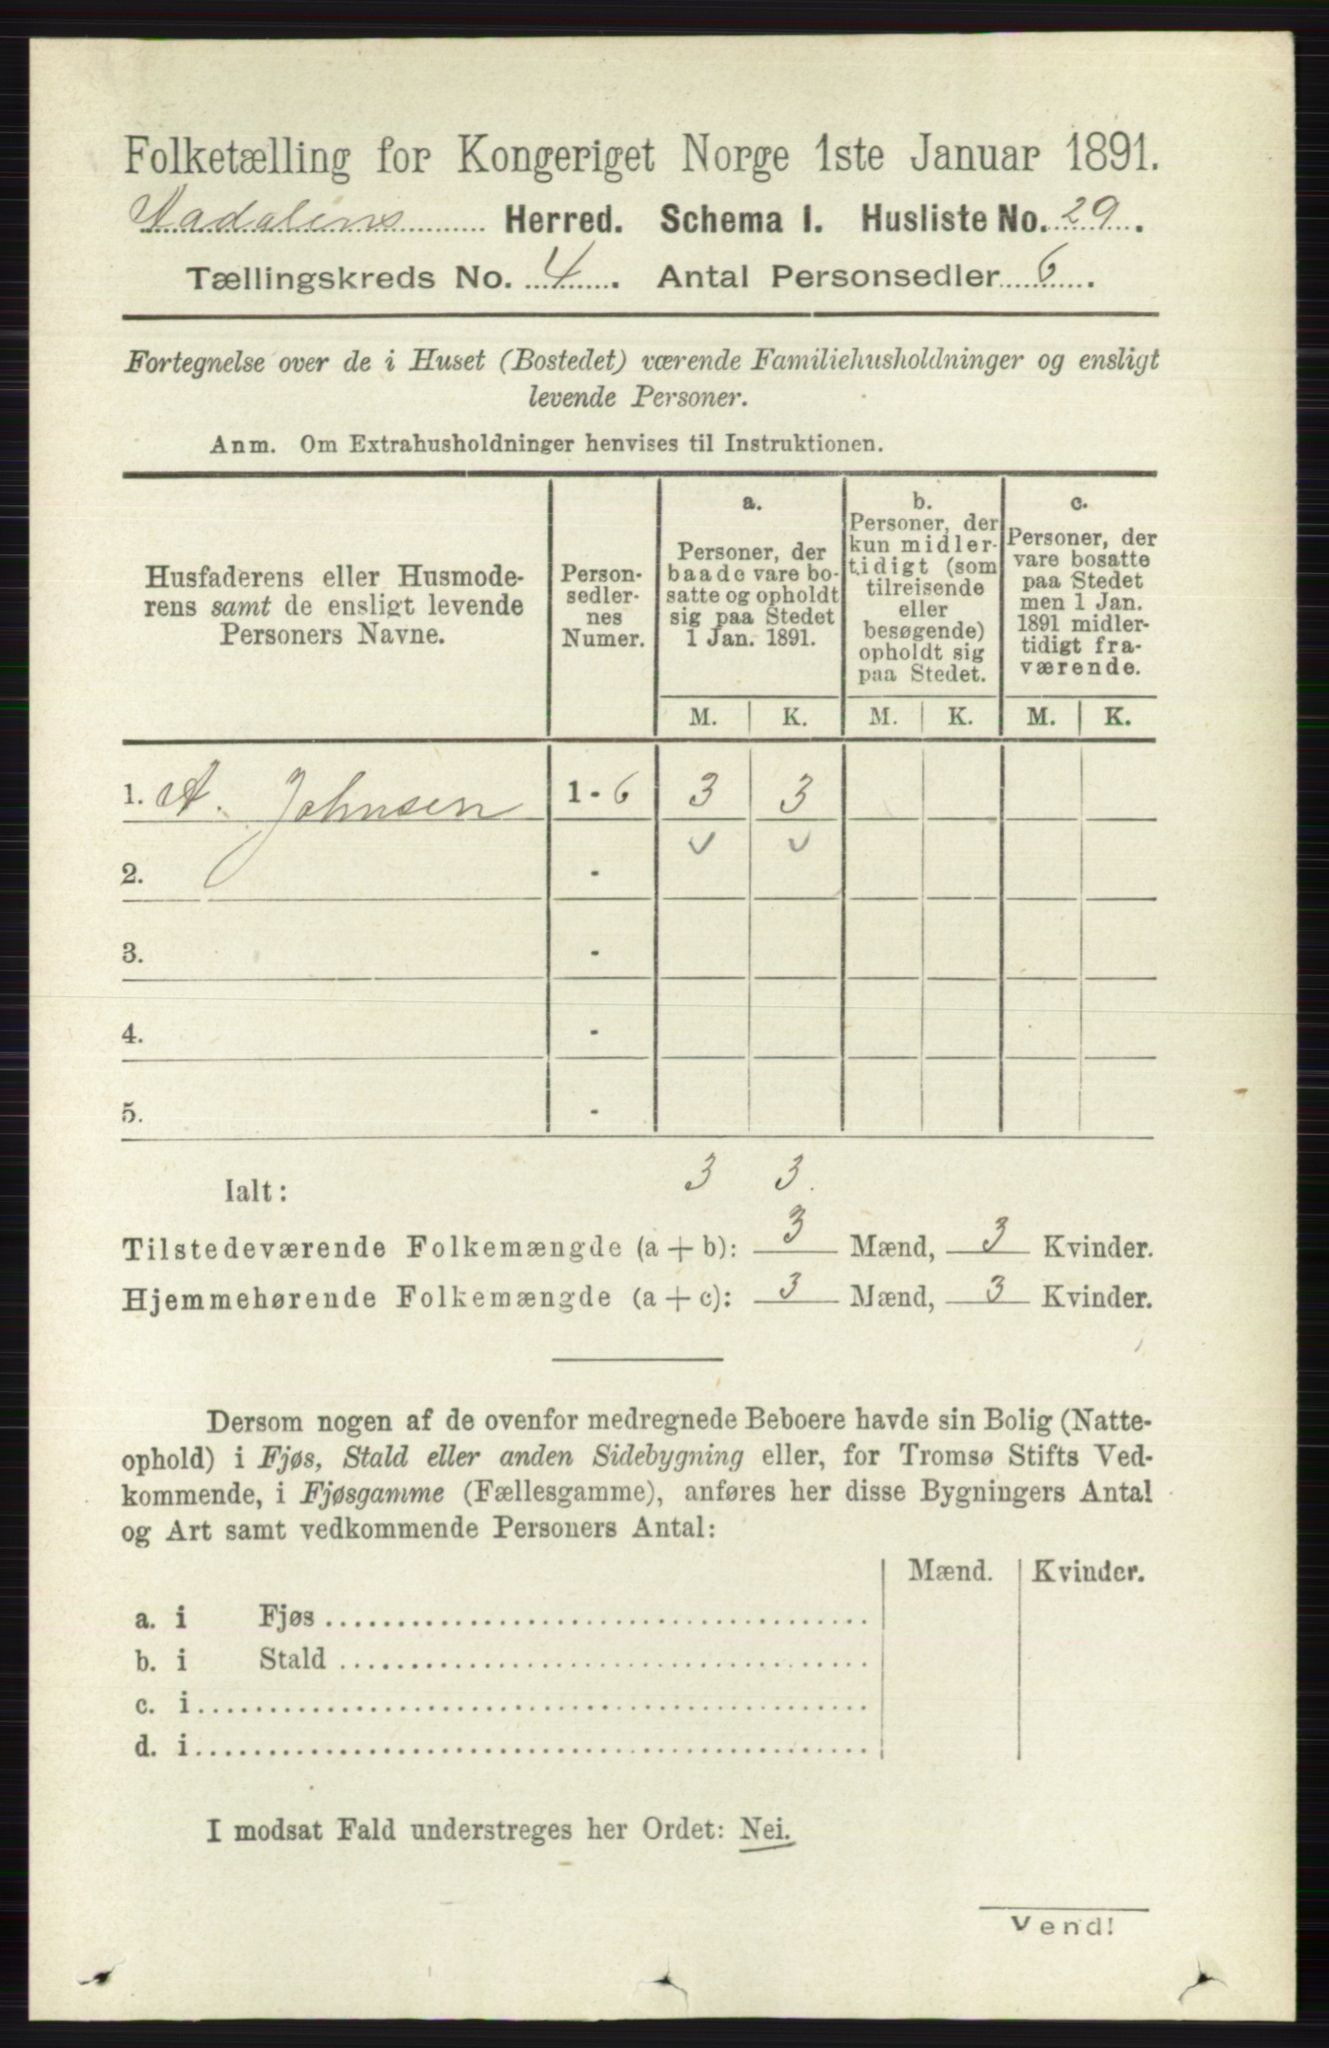 Folketælling for Kongeriget Norge 1ste Januar 1891.
Aadalens Herred. Schema I. Husliste No. 29.
Tællingskreds No. 4. Antal Personsedler 6.
Fortegnelse over de i Huset (Bostedet) værende Familiehusholdninger og ensligt
levende Personer.
Anm. Om Extrahusholdninger henvises til Instruktionen.
Husfaderens eller Husmode-
rens samt de ensligt levende
Personers Navne.
Person-
sedler-
nes
Numer.
a.
Personer, der
baade vare bo-
satte og opholdt
sig paa Stedet
1 Jan. 1891.
b.
Personer, der
kun midler-
tidigt (som
tilreisende
eller
besøgende)
opholdt sig
paa Stedet.
c.
Personer, der
vare bosatte
paa Stedet
men 1 Jan.
1891 midler-
tidigt fra-
værende.
M. K. M. K. M. K.
1. A. Johnsen 1 - 6 3 3
2. -
3. -
4. -
5. -
Ialt: 3 3.
Tilstedeværende Folkemængde (a + b): 3 Mænd, 3 Kvinder.
Hjemmehørende Folkemængde (a + c): 3 Mænd, 3 Kvinder.
Dersom nogen af de ovenfor medregnede Beboere havde sin Bolig (Natte-
ophold) i Fjøs, Stald eller anden Sidebygning eller, for Tromsø Stifts Ved-
kommende, i Fjøsgamme (Fællesgamme), anføres her disse Bygningers Antal
og Art samt vedkommende Personers Antal:
Mænd. Kvinder.
a. i Fjøs
b. i Stald
c. i
d. i
I modsat Fald understreges her Ordet: Nei.
Vend!